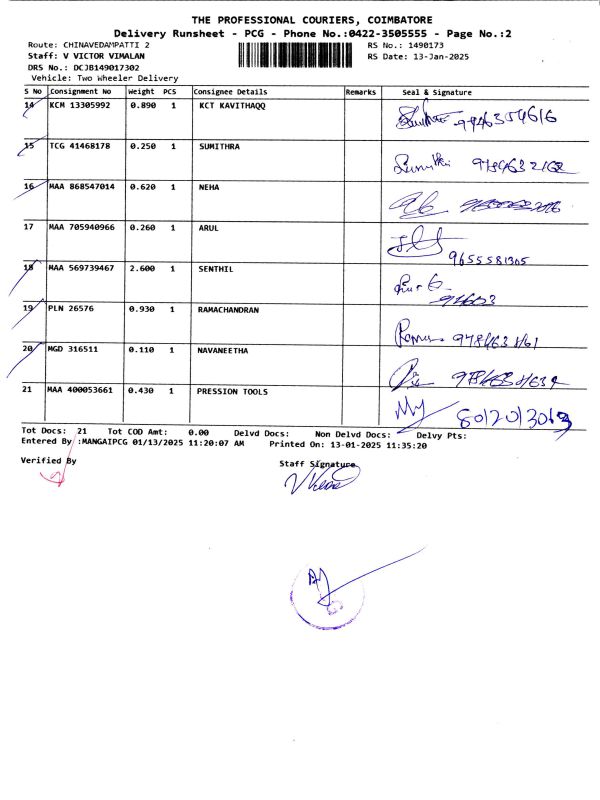 THE PROFESSIONAL COURIERS, COIMBATORE
Delivery Runsheet - PCG - Phone No.:0422-3505555 - Page No.:2
Route: CHINAVEDAMPATTI 2 RS No.: 1490173
Staff: V VICTOR VIMALAN RS Date: 13-Jan-2025
DRS No.: DCJB149017302
Vehicle: Two Wheeler Delivery
S No Consignment No Weight PCS Consignee Details Remarks Seal & Signature
14 KCM 13305992 0.890 1 KCT KAVITHAQQ
15 TCG 41468178 0.250 1 SUMITHRA
16 MAA 868547014 0.620 1 NEHA
17 MAA 705940966 0.260 1 ARUL 9655581305
18 MAA 569739467 2.600 1 SENTHIL
19 PLN 26576 0.930 1 RAMACHANDRAN
20 MGD 316511 0.110 1 NAVANEETHA
21 MAA 400053661 0.430 1 PRESSION TOOLS
Tot Docs: 21 Tot COD Amt: 0.00 Delvd Docs: Non Delvd Docs: Delvy Pts:
Entered By :MANGAIPCG 01/13/2025 11:20:07 AM Printed On: 13-01-2025 11:35:20
Verified By
Staff Signature